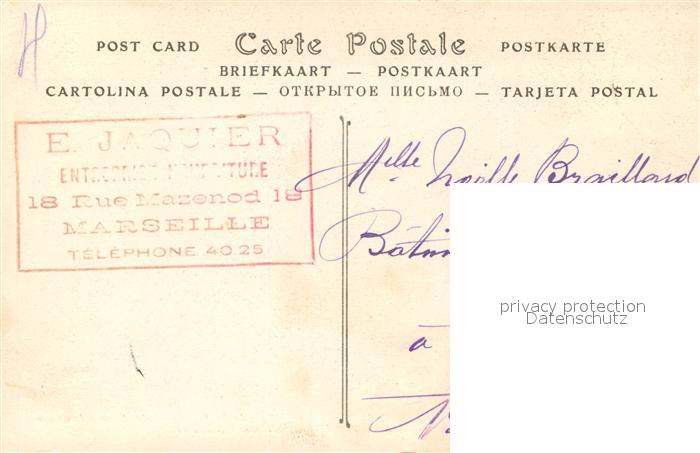 POST CARD Carte Postale POSTKARTE
BRIEFKAART — POSTKAART
CARTOLINA POSTALE — ОТКРЫТОЕ ПИСЬМО — TARJETA POSTAL
E. JAQUIER
18 Rue Mazenod 18
MARSEILLE
TÉLÉPHONE 40.25
Melle Noëlle Brailland
à
privacy protection
Datenschutz